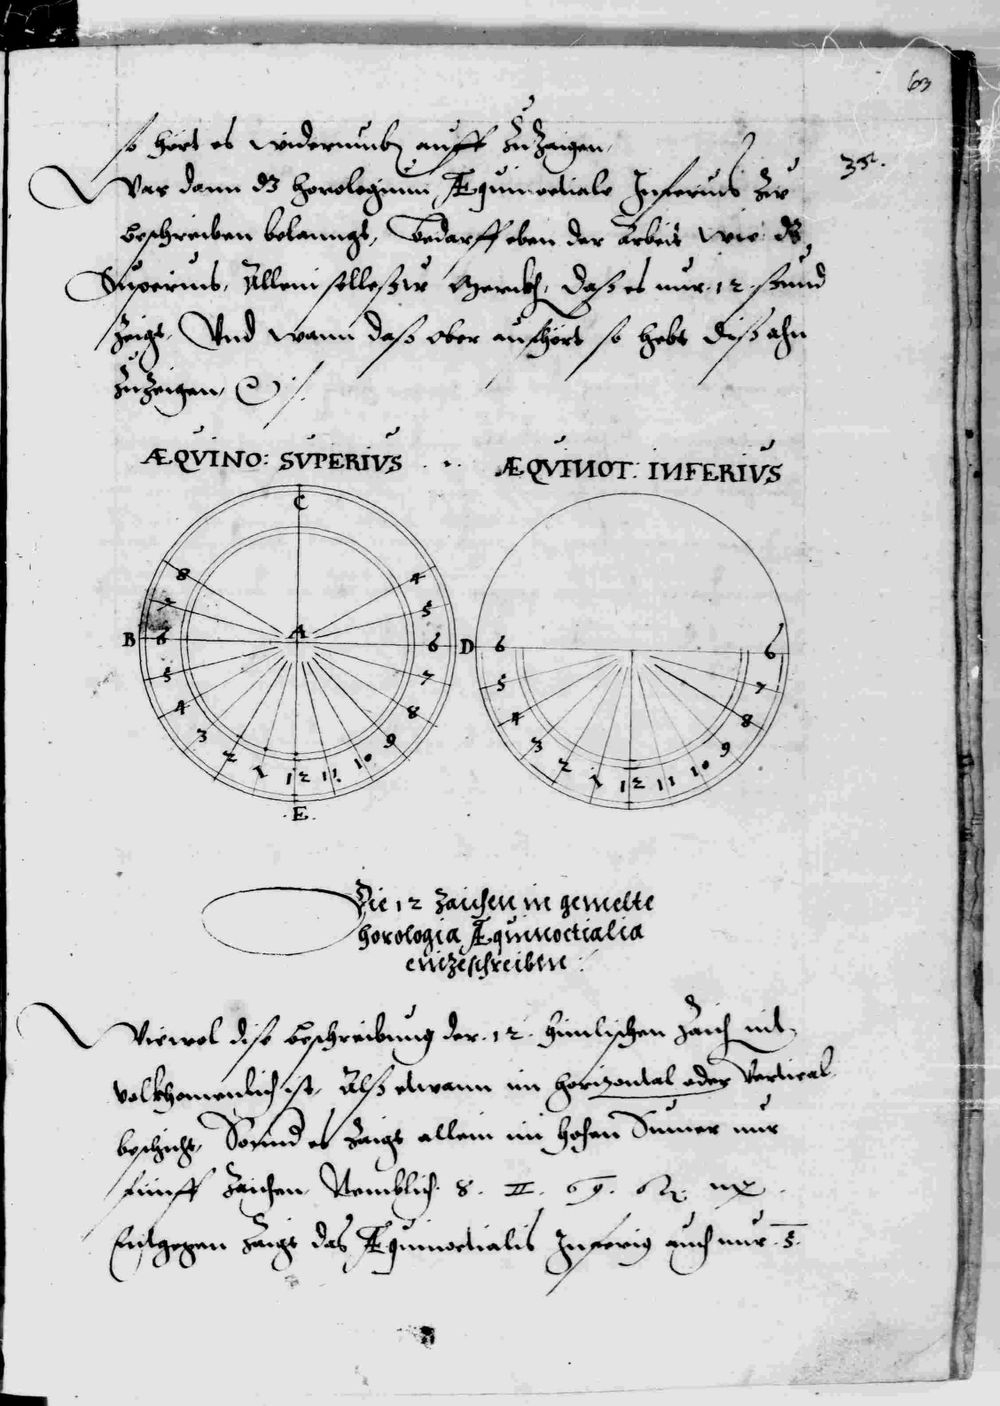 63
so hört es widerumb auff zu zaigen,
35.
Was dann dz horologium Æquinoctiale Inferius zu
beschreiben belanngt, bedarff eben der Arbeit wie dz
Superius, Allein solleß Merckh, daß es nur .12. stund
zeigt, Vnd wann daß ober aufhört so hebt diß ahn
zu zeigen,
ÆQVINO: SVPERIVS
ÆQVINOT: INFERIVS
C
8 4
7 5
B 6 A 6 D 6 6
5 7 5 7
4 8 4 8
3 9 3 9
2 1 12 11 10 2 1 12 11 10
E
Die 12 Zaichen in gemelte
horologia Æquinoctialia
einzeschreiben
Wiewol dise beschreibung der .12. himlischen Zaich nit
volkhomenlich ist, Alß etwann im horizontal oder Vertical
beschicht, Sonnd es Zaigt allein im hohen Sumer nur
fünff Zaichen, Nemblich ♉. ♊. ♋. ♌. ♍.
Entgegen Zaigt das Æquinoctialis Inferius auch nur .5.